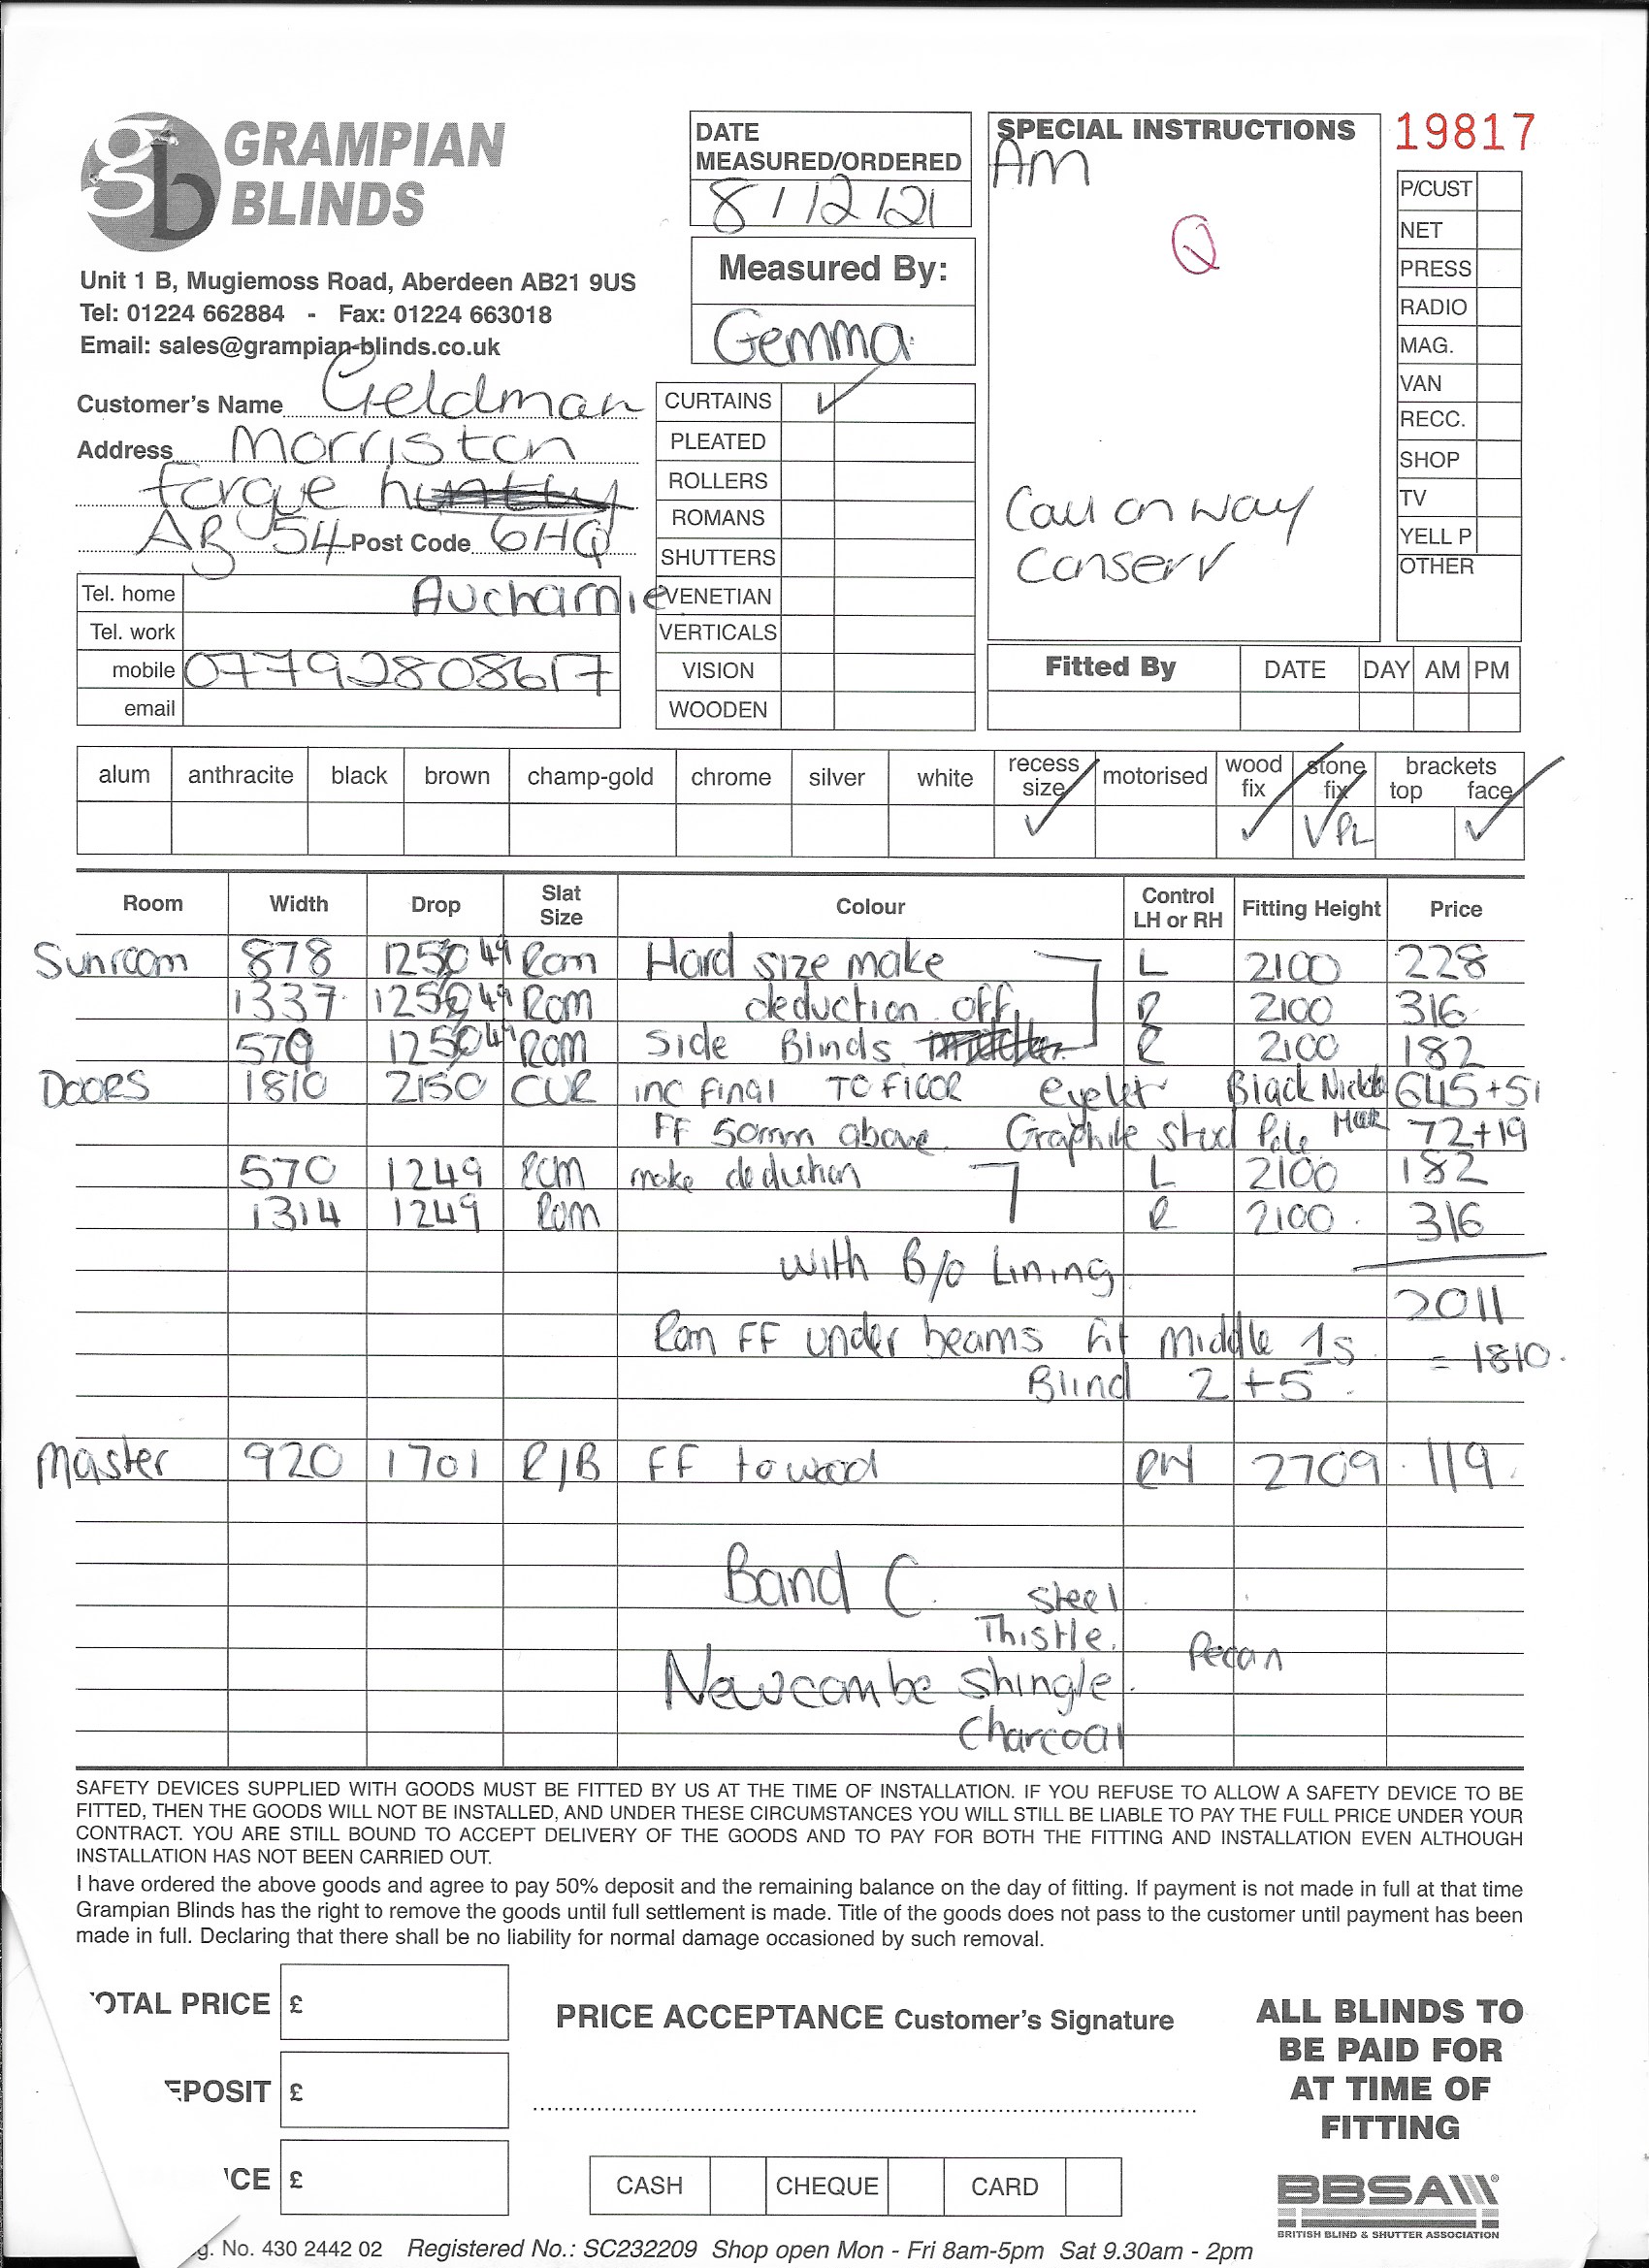 GRAMPIAN
BLINDS
Unit 1 B, Mugiemoss Road, Aberdeen AB21 9US
Tel: 01224 662884 - Fax: 01224 663018
Email: sales@grampian-blinds.co.uk
DATE
MEASURED/ORDERED
8/12/21
Measured By:
Gemma
SPECIAL INSTRUCTIONS
AM
Q
Call on way
Conserv
19817
P/CUST
NET
PRESS
RADIO
MAG.
VAN
RECC.
SHOP
TV
YELL P
OTHER
Customer's Name Geldman
Address Morriston
Forgue
AB 54 Post Code 6HQ
Tel. home Aucharnie
Tel. work
mobile 07792808617
email
CURTAINS ✓
PLEATED
ROLLERS
ROMANS
SHUTTERS
VENETIAN
VERTICALS
VISION
WOODEN
Fitted By DATE DAY AM PM
alum anthracite black brown champ-gold chrome silver white recess size motorised wood fix stone fix brackets top face
✓ ✓ ✓ PL ✓
Room Width Drop Slat Size Colour Control LH or RH Fitting Height Price
Sunroom 878 1250 49 Rom Hard size make L 2100 228
1337 1250 49 Rom deduction off R 2100 316
570 1250 49 Rom Side Blinds R 2100 182
Doors 1810 2150 CUR inc final TO FlOOR eyelet Black Nickle 645+51
FF 50mm above Graphite stud Pole 72+19
570 1249 Rom make deduction L 2100 182
1314 1249 Rom R 2100 316
with B/o Lining
2011
Rom FF under beams fit Middle 1s = 1810
Blind 2+5
Master 920 1701 R/B FF to wood RH 2709 119
Band C
Steel
Thistle
Pecan
Newcombe Shingle
Charcoal
SAFETY DEVICES SUPPLIED WITH GOODS MUST BE FITTED BY US AT THE TIME OF INSTALLATION. IF YOU REFUSE TO ALLOW A SAFETY DEVICE TO BE
FITTED, THEN THE GOODS WILL NOT BE INSTALLED, AND UNDER THESE CIRCUMSTANCES YOU WILL STILL BE LIABLE TO PAY THE FULL PRICE UNDER YOUR
CONTRACT. YOU ARE STILL BOUND TO ACCEPT DELIVERY OF THE GOODS AND TO PAY FOR BOTH THE FITTING AND INSTALLATION EVEN ALTHOUGH
INSTALLATION HAS NOT BEEN CARRIED OUT.
I have ordered the above goods and agree to pay 50% deposit and the remaining balance on the day of fitting. If payment is not made in full at that time
Grampian Blinds has the right to remove the goods until full settlement is made. Title of the goods does not pass to the customer until payment has been
made in full. Declaring that there shall be no liability for normal damage occasioned by such removal.
OTAL PRICE £
PRICE ACCEPTANCE Customer's Signature
EPOSIT £
CE £
CASH CHEQUE CARD
ALL BLINDS TO
BE PAID FOR
AT TIME OF
FITTING
BBSA
BRITISH BLIND & SHUTTER ASSOCIATION
g. No. 430 2442 02 Registered No.: SC232209 Shop open Mon - Fri 8am-5pm Sat 9.30am - 2pm